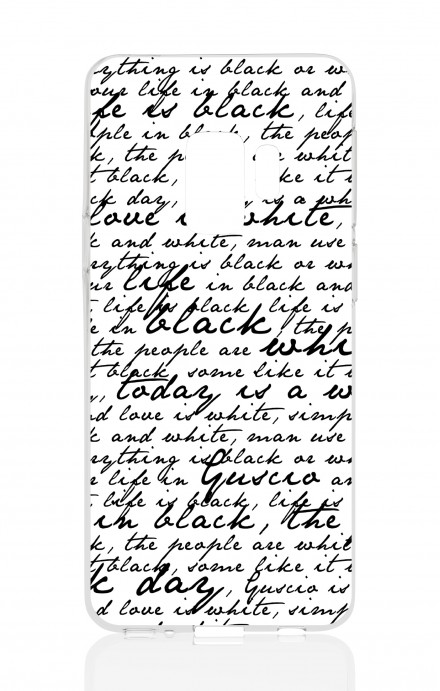 ything is black or w
our life in black and
fe is black, life
ple in bl the peop
k, the p are whit
t black, ke it i
ck day, y is a wh
love i white,
k and white, man use
rything is black or wh
ur life in black and
t life is black, life is
e in black, the p
the people are whi
t black, some like it i
, today is a w
d love is white, simp
k and white, man use
rything is black or wh
r life in Guscio an
t life is black, life is
in black, the
k, the people are whit
t black, some like it i
k day, Guscio is
d love is white, simp